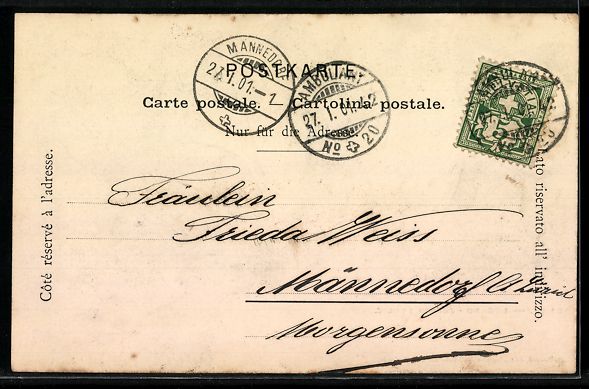 POSTKARTE.
Carte postale. Cartolina postale.
Nur für die Adresse.
MÄNNEDORF
27. I. 01.–1
AMBULANT
27. I. 01.12
No 20
Côté réservé à l'adresse.
Lato riservato all' indirizzo.
Fräulein
Frieda Weiss
Männedorf
Morgensonne